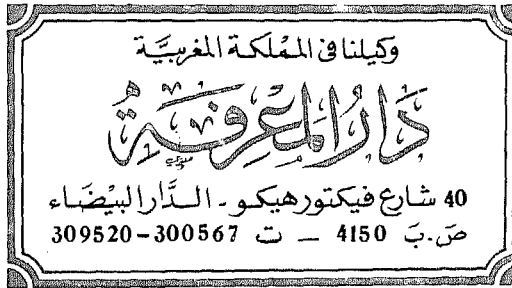 وكيلنا في المملكة المغربيّة
دَارُ المَعْرِفَةِ
40 شارع فيكتور هيكو - الدَّار البيْضَاء
صَ.بَ 4150 — ت 300567-309520